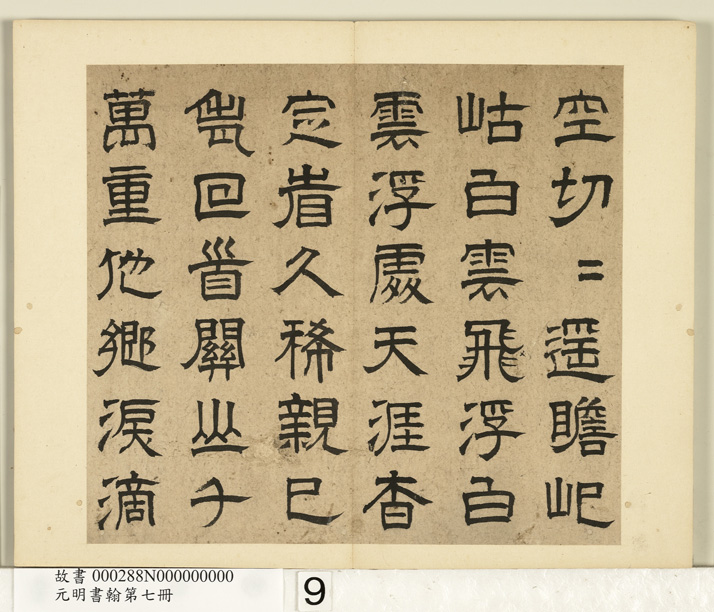 空切〻遥瞻屺
岵白雲飛浮白
雲浮處天涯杳
定省久稀親已
耄回首關山千
萬重他鄉淚滴
故書 000288N000000000
元明書翰第七冊
9